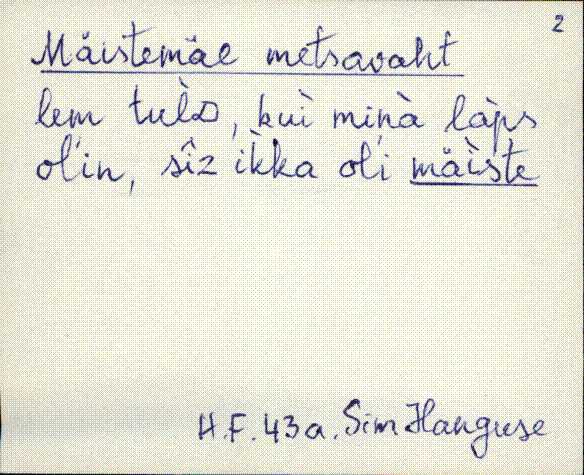 2
Mäistemäe metsavaht
lem tulD, kui mińà làps
ol'in, sîz ìkka oli mäìste
H.F. 43a. Sim Hanguse